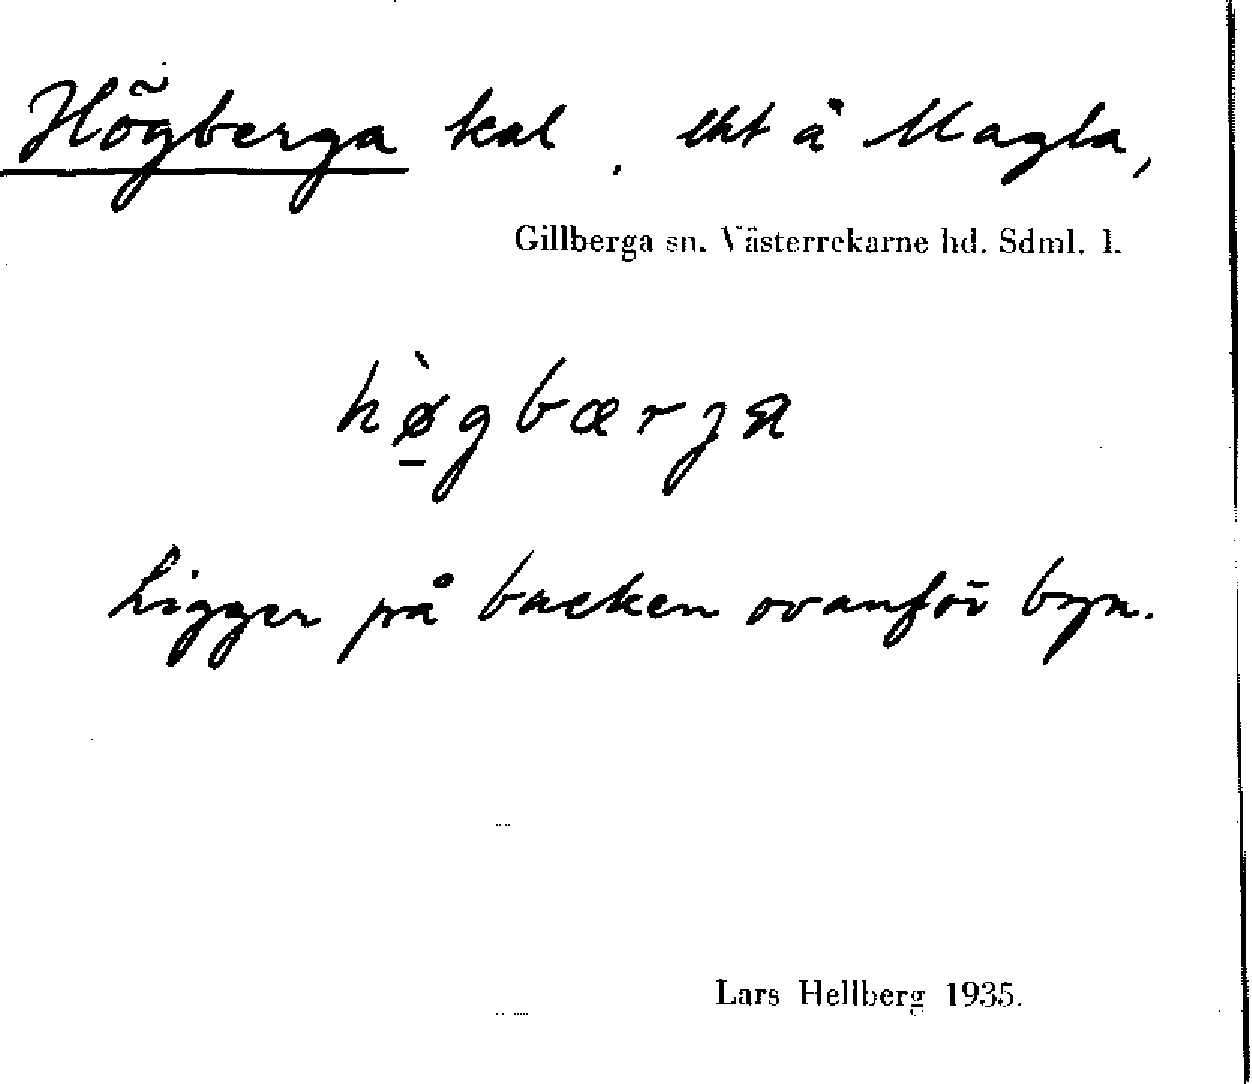 Högberga kal. lht å Magla,
Gillberga sn. Västerrekarne hd. Sdml. l.
hø̠̀gbærga
Ligger på backen ovanför byn.
Lars Hellberg 1935.